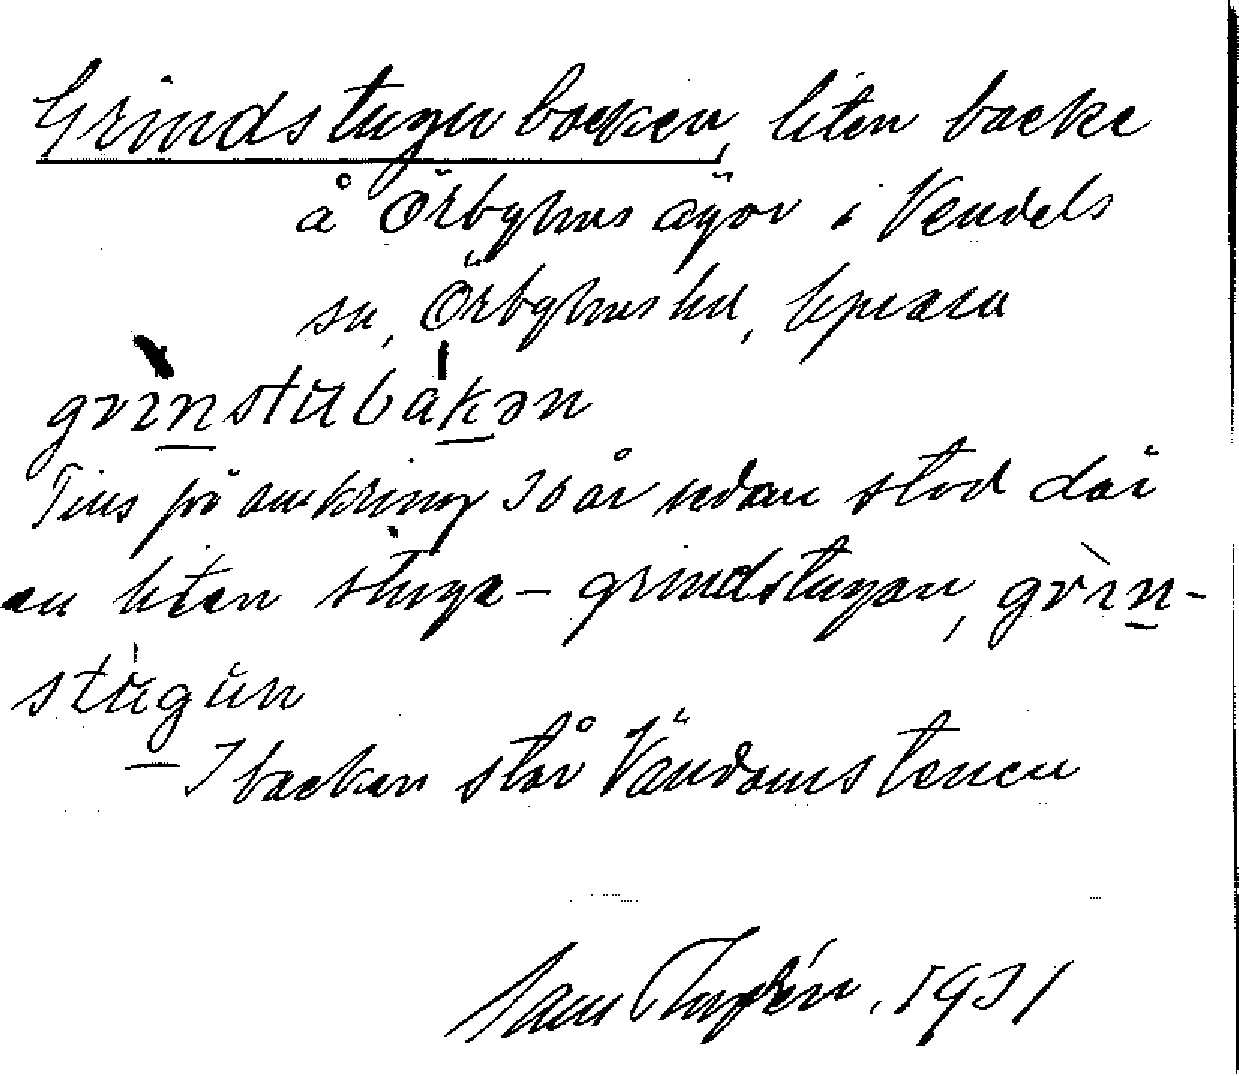 Grindstugubacken, liten backe
å Örbyhus ägor i Vendels
sn, Örbyhus hd, Uppsala
grinstubakən
Tills på omkring 30 år sedan stod där
en liten stuga – grindstugan, grin-
stugun
I backen står Vändomstenen
1931